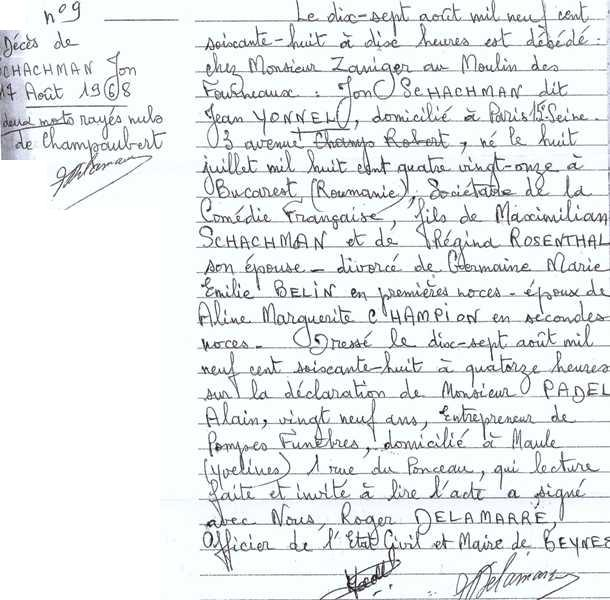 n°9
Décès de
SCHACHMAN Jon
17 Août 1968
deux mots rayés nuls
de Champaubert
Le dix-sept août mil neuf cent
soixante-huit à dix heures est décédé :
chez Monsieur Zaniger au Moulin des
Fourneaux : Jon SCHACHMAN dit
Jean YONNEL, domicilié à Paris Seine.
3 avenue Champ Robert, né le huit
juillet mil huit cent quatre vingt-onze à
Bucarest (Roumanie), Sociétaire de la
Comédie Française, fils de Maximilian
SCHACHMAN et de Régina ROSENTHAL
son épouse - divorcé de Germaine Marie
Emilie BELIN en premières noces - époux de
Aline Marguerite CHAMPION en secondes
noces - Dressé le dix-sept août mil
neuf cent soixante-huit à quatorze heures
sur la déclaration de Monsieur PADEL
Alain, vingt neuf ans, Entrepreneur de
Pompes Funèbres, domicilié à Maule
(Yvelines) 1 rue du Ponceau, qui lecture
faite et invité à lire l'acte a signé
avec Nous, Roger DELAMARRE,
Officier de l'Etat Civil et Maire de BEYNES